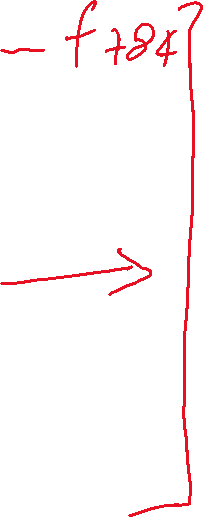 — f₇₈₄ ]
→